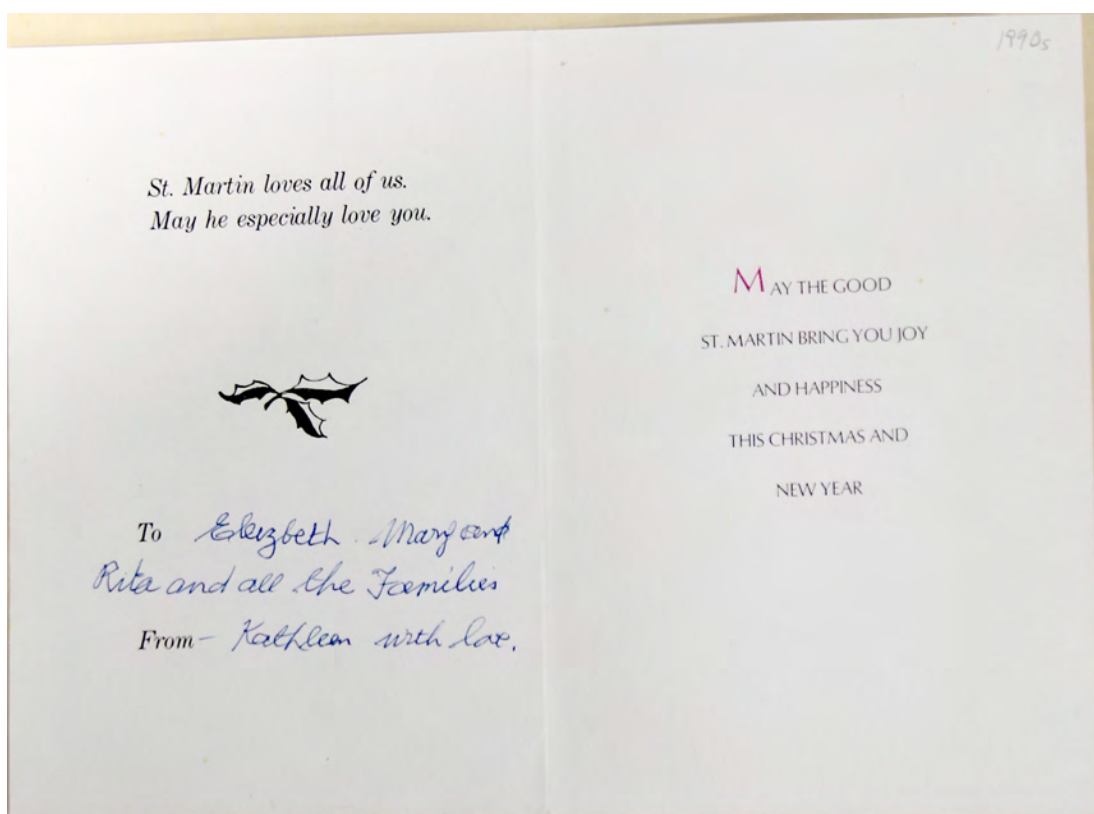 St. Martin loves all of us.
May he especially love you.
To Elizbeth. Mary and
Rita and all the Families
From - Kathleen with love.
1990s
MAY THE GOOD
ST. MARTIN BRING YOU JOY
AND HAPPINESS
THIS CHRISTMAS AND
NEW YEAR